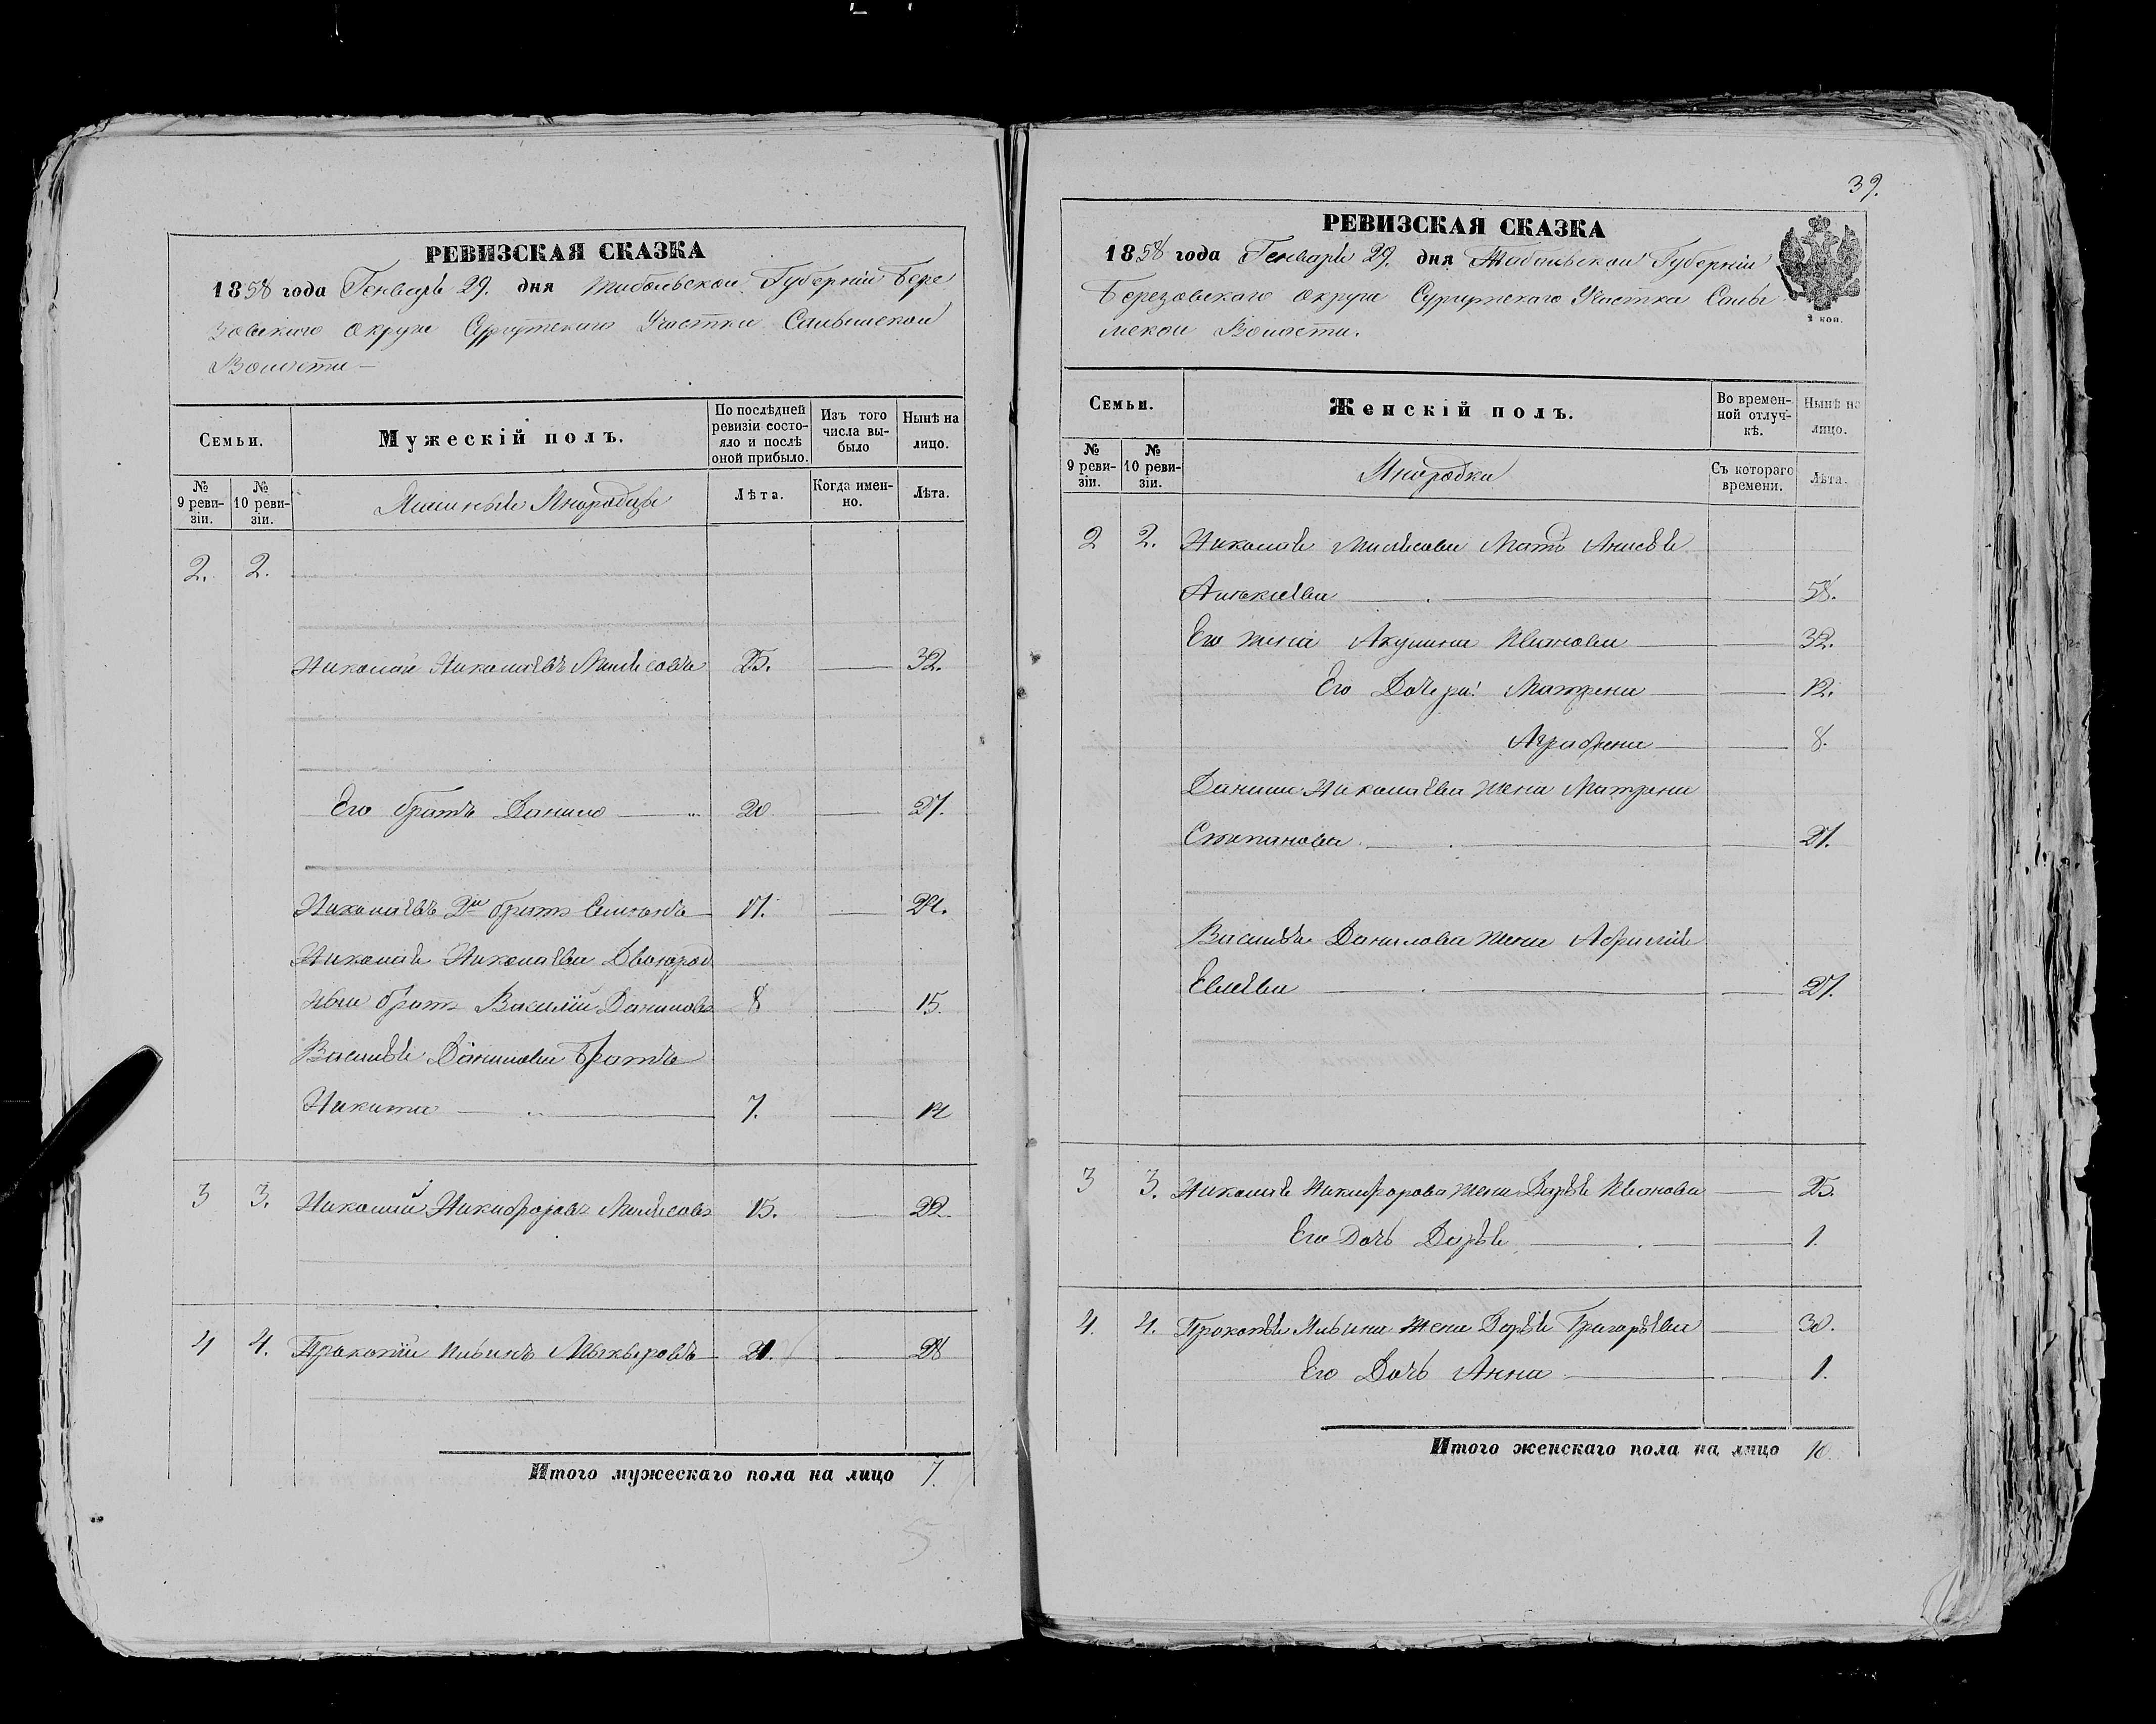 РЕВИЗСКАЯ СКАЗКА
1858 года Генваря 29. дня Тобольской Губерніи Бере
зовскаго округа Сургутскаго Участка Салымской
Волости
Семьи.
Мужескій полъ.
По послѣдней ревизіи состояло и послѣ оной прибыло.
Изъ того числа выбыло
Нынѣ на лицо.
№ 9 ревизіи.
№ 10 ревизіи.
Ясашные Инородцы
Лѣта.
Когда именно.
Лѣта.
2. 2.
Николай Николаевъ 25. 32.
Его братъ Данило 20 27.
Николаевъ 2й братъ Семенъ 17. 24.
Николая Николаева Двоюрод
ные братъ Василій Даниловъ 8 15.
Василья Данилова братъ
Никита 7. 14
3 3. Николай Никифоровъ 15. 22
4 4. Прокопій Ильинъ 21. 28
Итого мужескаго пола на лицо 7.
5
39.
РЕВИЗСКАЯ СКАЗКА
1858 года Генваря 29. дня Тобольской Губерніи
Березовскаго округа Сургутскаго Участка Салы
мской Волости.
2 коп.
Семьи.
Женскій полъ.
Во временной отлучкѣ.
Нынѣ на лицо.
№ 9 ревизіи.
№ 10 ревизіи.
Инородки
Съ котораго времени.
Лѣта.
2 2. Николая Мать
58.
Его жена Акулина Иванова 32.
Его Дочери: Матрена 12.
Аграфена 8.
Данила Николаева жена Матрена
Степанова 27.
Василья Данилова жена
27.
3 3. Николая Никифорова жена Дарья Иванова 25.
Его Дочь Дарья 1.
4. 4. Прокопья Ильина жена Дарья Григорьева 30.
Его Дочь Анна 1.
Итого женскаго пола на лицо 10